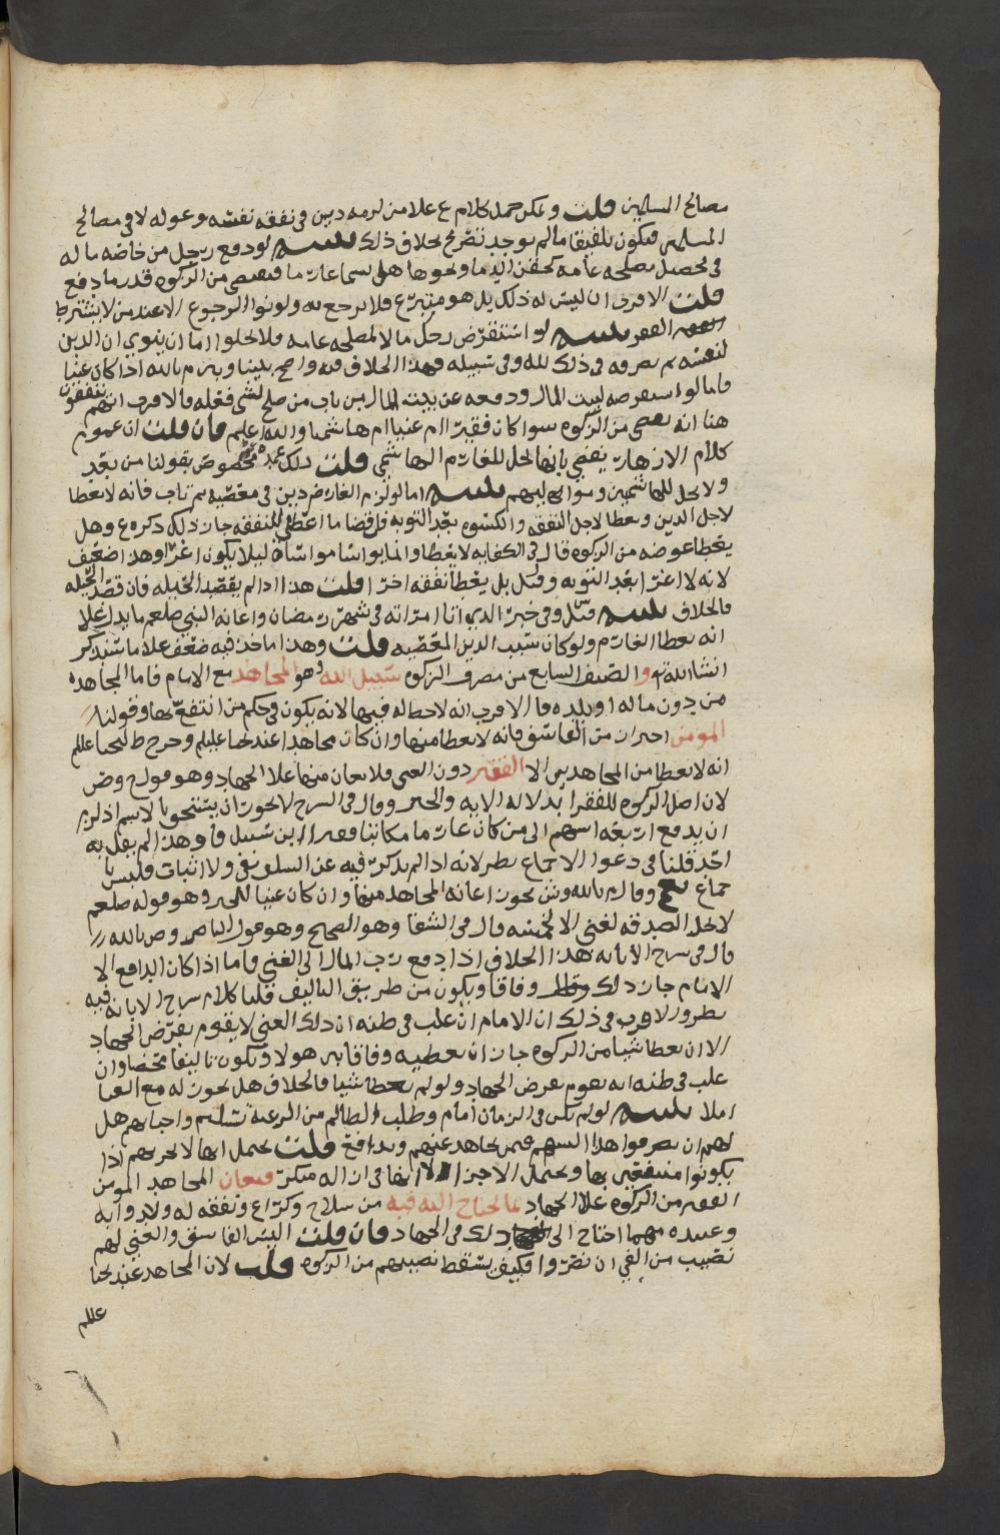 مصالح المسلمين قلت ويمكن حمل كلام ع علا من لزمه دين في نفقه نفسه وعوله لا في مصالح
المسلمين فيكون تلفيقا ما لم يوجد تصريح بخلاف ذلك تنبيه لو دفع رجل من خاصه ماله
في تحصيل مصلحه عامه كحقن الدما ونحوها هل يسما غارما فيقضى من الزكوه قدر ما دفع
قلت الاقرب ان ليس له ذلك بل هو متبرع فلا يرجع به ولو نوا الرجوع الا عند من لا يشترط
الفقر تنبيه لو استقرض رجل مالا لمصلحه عامه فلا يخلوا اما ان ينوي ان الدين
لنفسه ثم يصرفه في ذلك لله وفي سبيله فهذا الخلاف فيه واضح بيننا وبين م بالله اذا كان غنيا
واما لو استقرضه لبيت المال ودفعه عن بيت المال من باب من صلح لشي فعله فالاقرب انهم يتفقون
هنا انه يقضى من الزكوه سوا كان فقيرا ام غنيا ام هاشميا والله اعلم فان قلت ان عموم
كلام الازهار يقضي بانها تحل للغارم الهاشمي قلت ذلك مخصوص بقولنا من بعد
ولا تحل للهاشميين ومواليهم تنبيه اما لو لزم الغارم دين في معصيه ثم تاب فانه لا يعطا
لاجل الدين ويعطا لاجل النفقه والكسوه بعد التوبه فان قضا ما اعطي للنفقه جاز ذلك ذكره ع وهل
يعطا عوضه من الزكوه قال في الكفايه لا يعطا وانما يواسا مواساة ليلا يكون اغرا وهذا ضعيف
لانه لا اغرا بعد التوبه وقيل بل يعطا نفقه اخرا قلت هذا اذا لم يقصد الحيله فان قصد الحيله
فالخلاف تنبيه قيل وفي خبر الذي اتا امراته في شهر رمضان واعانه النبي صلعم ما يدل علا
انه يعطا الغارم ولو كان سبب الدين المعصيه قلت وهذا ماخذ فيه ضعف علا ما سنذكر
انشا الله تع والصنف السابع من مصرف الزكوه سبيل الله وهو المجاهد مع الامام فاما المجاهده
من دون ماله او بلده فالاقرب انه لا حظ له فيها لانه يكون في حكم من انتفع بها وقولنا
المومن احتراز من الفاسق فانه لا يعطا منها وان كان مجاهدا عند اصحابنا عليلم وخرج ط ليحيا عللم
انه لا يعطا من المجاهدين الا الفقير دون الغني فلا يعان منها علا الجهاد وهو قول ح وص
لان اصل الزكوه للفقرا بدلاله الايه والخبر وقال في الشرح لا يجوز ان يستحق بالاسم اذ لزم
ان يدفع اربعه اسهم الى من كان غارما مكاتبا فقيرا ابن سبيل قا وهذا لم يقل به
احد قلنا في دعوا الاجماع نظر لانه اذا لم يذكر فيه عن السلف نفي ولا اثبات فليس با
جماع وقال م بالله وش يجوز اعانه المجاهد منها وان كان غنيا للخبر وهو قوله صلعم
لا تحل الصدقه لغني الا لخمسه قال في الشفا وهو الصحيح وهو قول الناصر وص بالله
قال في شرح الابانه هذا الخلاف اذا دفع رب المال الى الغني واما اذا كان الدافع الا
الامام جاز ذلك وفاقا ويكون من طريق التاليف قلنا كلام شرح الابانه فيه
نظر والاقرب في ذلك ان الامام ان غلب في ظنه ان ذلك الغني لا يقوم بفرض الجهاد
الا ان يعطا شيا من الزكوه جاز ان يعطيه وفاقا بين هولا ويكون تاليفا محضا وان
غلب في ظنه انه يقوم بفرض الجهاد ولو لم يعطا شيا فالخلاف هل يجوز له مع الغنا
ام لا تنبيه لو لم يكن في الزمان امام وطلب الظالم من الرعيه تسليم واجباتهم هل
لهم ان يصرفوا هذا السهم فيمن يجاهد عنهم ويدافع قلت يحتمل انها لا تجزيهم اذا
يكونوا منتفعين بها ويحتمل الاجزا لانها في ازاله منكر فيعان المجاهد المومن
الفقير من الزكوه علا الجهاد بما يحتاج اليه فيه من سلاح وكراع ونفقه له ولدوابه
وعبيده مهما احتاج الى ذلك في الجهاد فان قلت اليس الفاسق والغني لهم
نصيب من الفي ان نصروا فكيف يسقط نصيبهم من الزكوه قلت لان المجاهد عند يحيا
عللم